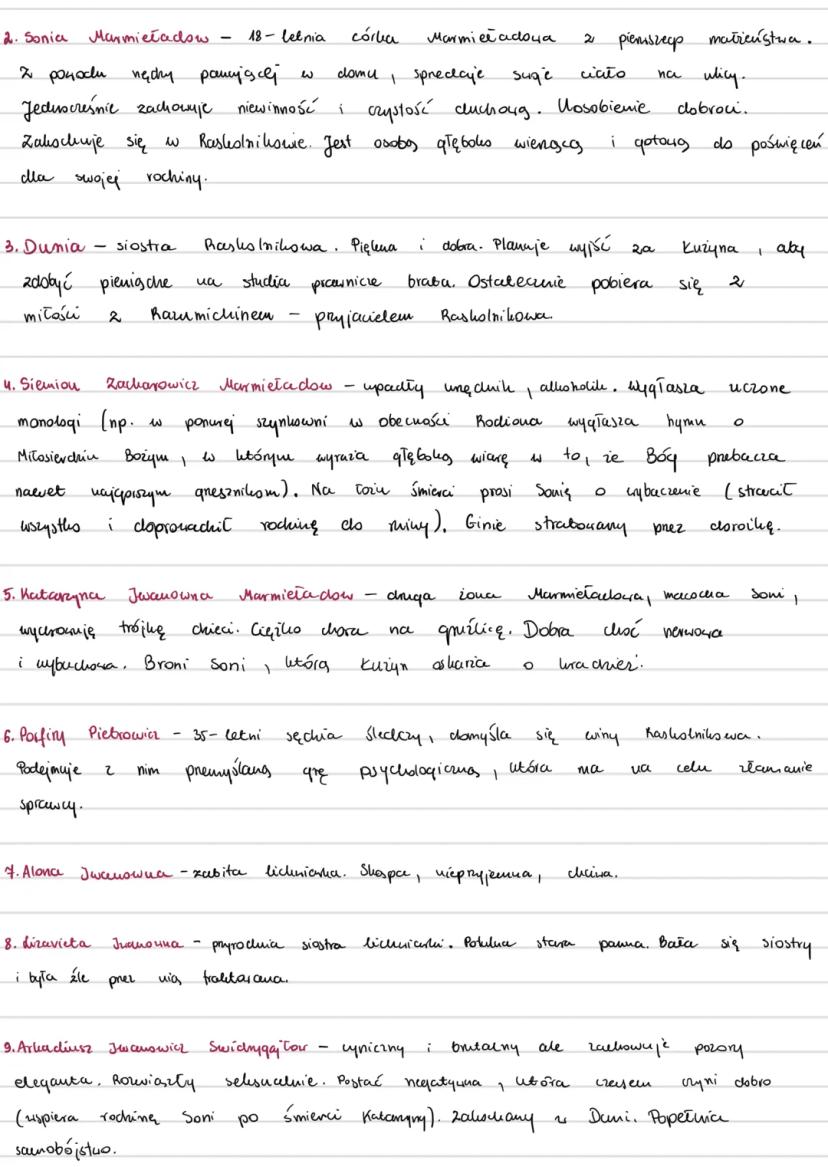 2. Sonia Marmieładow – 18-letnia córka Marmieładowa z pierwszego małżeństwa.
Z powodu nędzy panującej w domu, sprzedaje swoje ciało na ulicy.
Jednocześnie zachowuje niewinność i czystość duchową. Uosobienie dobroci.
Zakochuje się w Raskolnikowie. Jest osobą głęboko wierzącą i gotową do poświęceń
dla swojej rodziny.
3. Dunia – siostra Raskolnikowa. Piękna i dobra. Planuje wyjść za Łużyna, aby
zdobyć pieniądze na studia prawnicze brata. Ostatecznie pobiera się z
miłości z Razumichinem – przyjacielem Raskolnikowa.
4. Siemion Zacharowicz Marmieładow – upadły urzędnik, alkoholik. Wygłasza uczone
monologi (np. w ponurej szynkowni w obecności Rodiona wygłasza hymn o
Miłosierdziu Bożym, w którym wyraża głęboką wiarę w to, że Bóg przebacza
nawet najgorszym grzesznikom). Na łożu śmierci prosi Sonię o wybaczenie (stracił
wszystko i doprowadził rodzinę do ruiny). Ginie stratowany przez dorożkę.
5. Katarzyna Iwanowna Marmieładow – druga żona Marmieładowa, macocha Soni,
wychowuję trójkę dzieci. Ciężko chora na gruźlicę. Dobra choć nerwowa
i wybuchowa. Broni Soni, którą Łużyn oskarża o kradzież.
6. Porfiry Pietrowicz – 35-letni sędzia śledczy, domyśla się winy Raskolnikowa.
Podejmuje z nim przemyślaną grę psychologiczną, która ma na celu złamanie
sprawcy.
7. Alona Iwanowna – zabita lichwiarka. Skąpa, nieprzyjemna, chciwa.
8. Lizavieta Iwanowna – przyrodnia siostra lichwiarki. Potulna stara panna. Bała się siostry
i była źle przez nią traktowana.
9. Arkadiusz Iwanowicz Swidrygajłow – cyniczny i brutalny ale zachowuje pozory
eleganta. Rozwiązły seksualnie. Postać negatywna, która czasem czyni dobro
(wspiera rodzinę Soni po śmierci Katarzyny). Zakochany w Duni. Popełnia
samobójstwo.